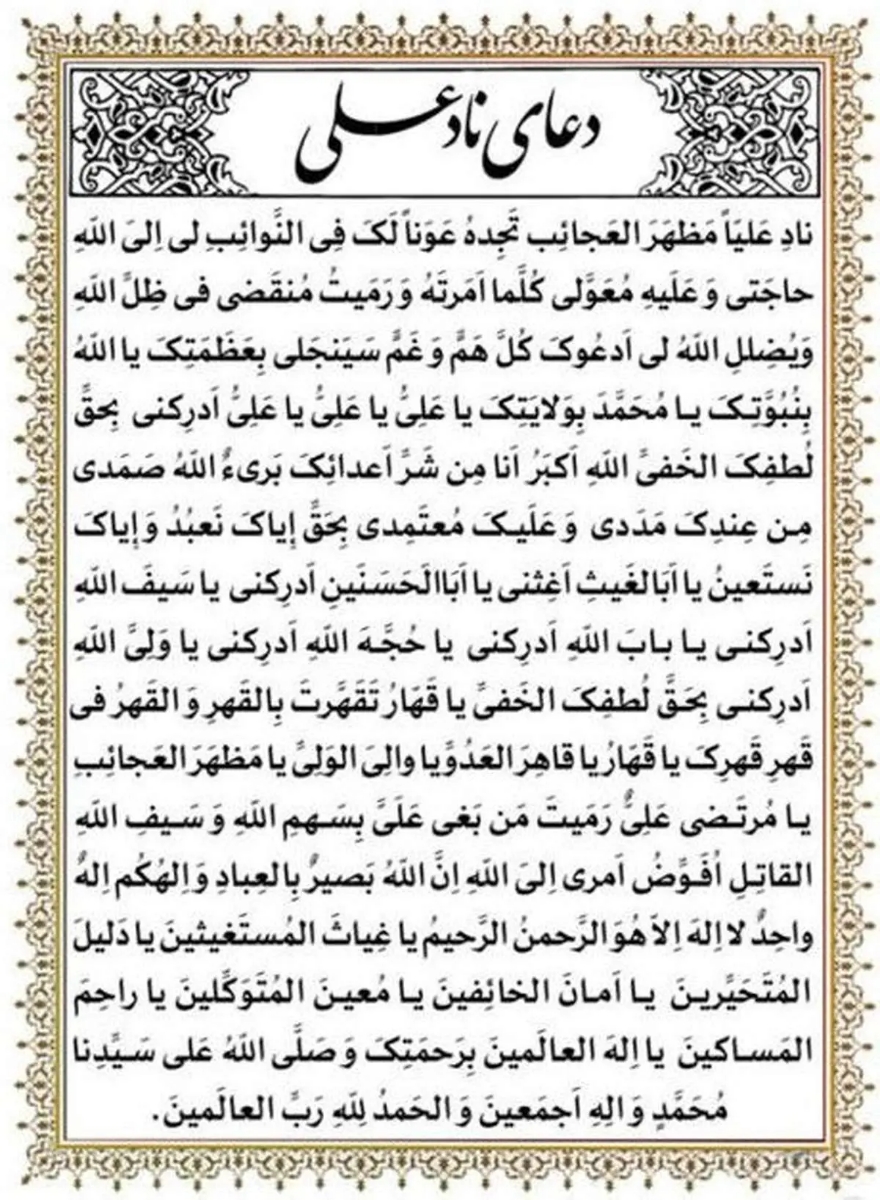 دعای ناد علی
نادِ عَلیَاً مَظهَرَ العَجائِب تَجِدهُ عَوَناً لَکَ فِی النَّوائِبِ لی اِلیَ اللهِ
حاجَتی وَ عَلَیهِ مُعَوَّلی کُلَّما اَمَرتَهُ وَ رَمَیتُ مُنقَضی فی ظِلَّ اللهِ
وَیُضِللِ اللهُ لی اَدعُوکَ کُلَّ هَمًّ وَ غَمًّ سَیَنجَلی بِعَظَمَتِکَ یا اللهُ
بِنُبُوَّتِکَ یا مُحَمَّدَ بِوَلایَتِکَ یا عَلِیُّ یا عَلِیُّ یا عَلِیُّ اَدرِکنی بِحقَّ
لُطفِکَ الخَفیَّ اللهِ اَکبَرُ اَنا مِن شَرَّ اَعدائِکَ بَریءٌ اللهُ صَمَدی
مِن عِندِکَ مَدَدی وَ عَلَیکَ مُعتَمِدی بِحَقَّ إیاکَ نَعبُدُ وَ إیاکَ
نَستَعینُ یا اَبَالغَیثِ اَغِثنی یا اَبَاالَحَسَنَینِ اَدرِکنی یا سَیفَ اللهِ
اَدرِکنی یا بابَ اللهِ اَدرِکنی یا حُجَّهَ اللهِ اَدرِکنی یا وَلِیَّ اللهِ
اَدرِکنی بِحَقَّ لُطفِکَ الخَفیَّ یا قَهّارُ تَقَهَّرتَ بِالقَهرِ وَ القَهرُ فی
قَهرِ قَهرِکَ یا قَهّارُ یا قاهِرَ العَدُوَّیا والِیَ الوَلِیَّ یا مَظهَرَ العَجائِبِ
یا مُرتَضی عَلِیُّ رَمَیتَ مَن بَغی عَلَیَّ بِسَهمِ اللهِ وَ سَیفِ اللهِ
القاتِلِ اُفَوَّضُ اَمری اِلیَ اللهِ اِنَّ اللهُ بَصیرٌ بِالعِبادِ وَ اِلهُکُم اِلهٌ
واحِدٌ لا اِلهَ اِلاَ هُوَ الرَّحمنُ الرَّحیمُ یا غِیاثَ المُستَغیثینَ یا دَلیلَ
المُتَحَیَّرینَ یا اَمانَ الخائِفینَ یا مُعینَ المُتَوَکَّلینَ یا راحِمَ
المَساکینَ یا اِلهَ العالَمینَ بِرَحمَتِکَ وَ صَلَّی اللهُ عَلی سَیَّدِنا
مُحَمَّدٍ وَ الِهِ اَجمَعینَ وَ الحَمدُ لِلهِ رَبَّ العالَمینَ.